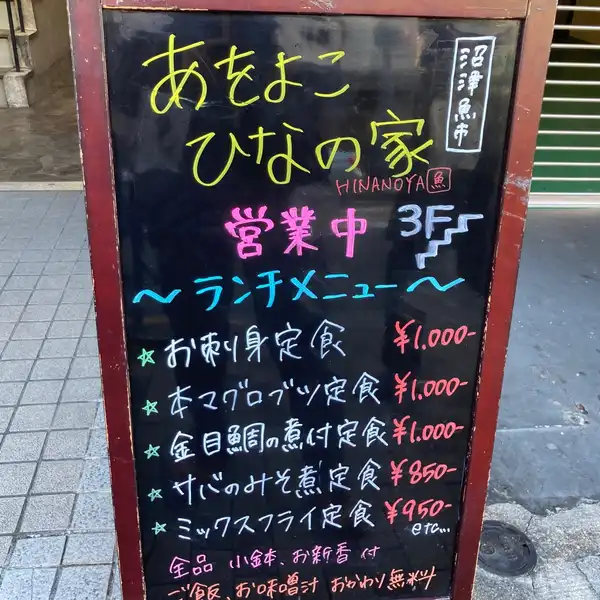 あをよこ
沼津魚市
ひなの家
HINANOYA 魚
営業中 3F
～ランチメニュー～
☆お刺身定食 ¥1,000-
☆本マグロブツ定食 ¥1,000-
☆金目鯛の煮付定食 ¥1,000-
☆サバのみそ煮定食 ¥850-
☆ミックスフライ定食 ¥950-
etc...
全品 小鉢、お新香付
ご飯、お味噌汁 おかわり無料